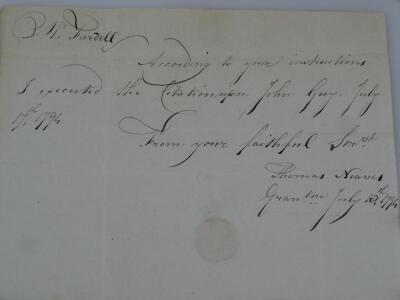 Mr. Fardell
According to your instructions
I executed the Citation upon John Guy July
17th. 1794
From your faithful Servt
Thomas Neaves
July 18th. 1794